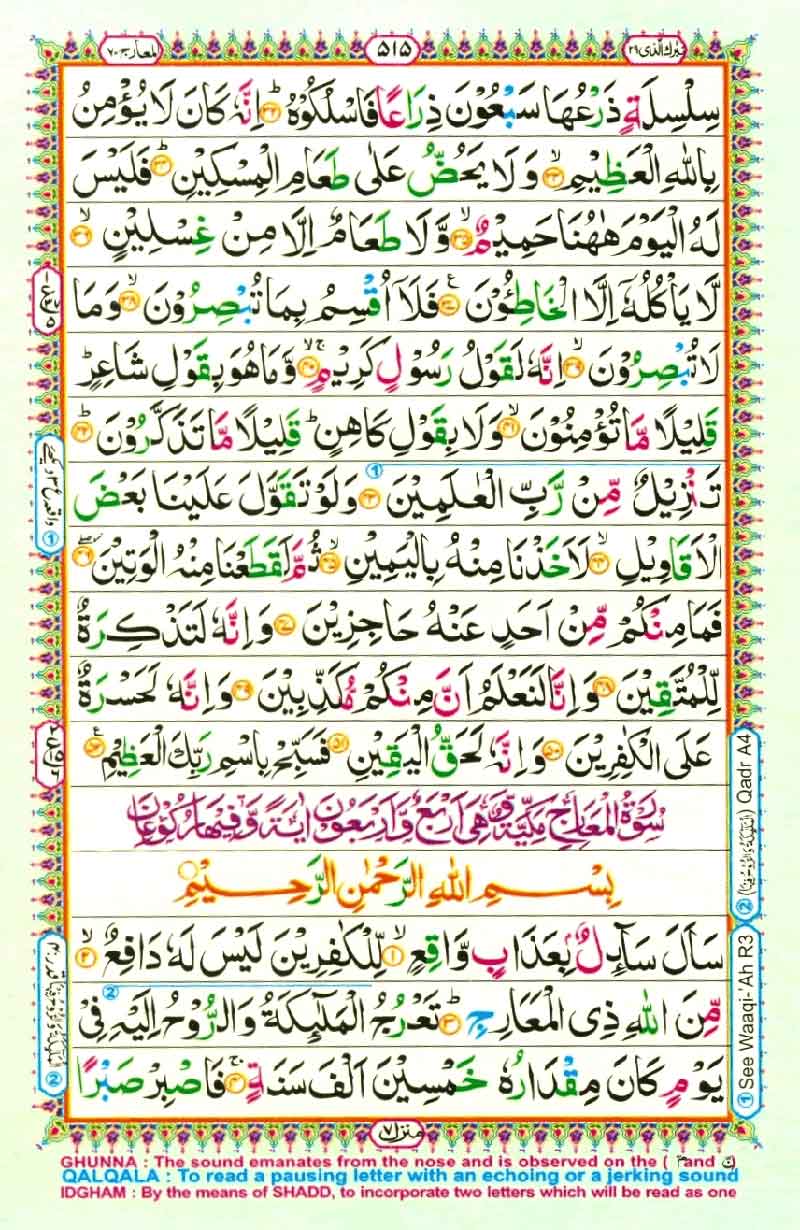 تبٰرك الذی ۲۹
۵۱۵
المعارج ۷۰
سِلْسِلَةٍ ذَرْعُهَا سَبْعُوْنَ ذِرَاعًا فَاسْلُكُوْهُ ؕ۳۲ اِنَّهٗ كَانَ لَا يُؤْمِنُ
بِاللّٰهِ الْعَظِيْمِ ۙ۳۳ وَلَا يَحُضُّ عَلٰى طَعَامِ الْمِسْكِيْنِ ؕ۳۴ فَلَيْسَ
لَهُ الْيَوْمَ هٰهُنَا حَمِيْمٌ ۙ۳۵ وَّلَا طَعَامٌ اِلَّا مِنْ غِسْلِيْنٍ ۙ۳۶
لَّا يَاْكُلُهٗۤ اِلَّا الْخَاطِـُٔوْنَ ۳۷ع فَلَاۤ اُقْسِمُ بِمَا تُبْصِرُوْنَ ۙ۳۸ وَمَا
لَا تُبْصِرُوْنَ ۙ۳۹ اِنَّهٗ لَقَوْلُ رَسُوْلٍ كَرِيْمٍ ۙۚ۴۰ وَّمَا هُوَ بِقَوْلِ شَاعِرٍ ؕ
قَلِيْلًا مَّا تُؤْمِنُوْنَ ۙ۴۱ وَلَا بِقَوْلِ كَاهِنٍ ؕ قَلِيْلًا مَّا تَذَكَّرُوْنَ ؕ۴۲
تَنْزِيْلٌ مِّنْ رَّبِّ الْعٰلَمِيْنَ ① ۴۳ وَلَوْ تَقَوَّلَ عَلَيْنَا بَعْضَ
الْاَقَاوِيْلِ ۙ۴۴ لَاَخَذْنَا مِنْهُ بِالْيَمِيْنِ ۙ۴۵ ثُمَّ لَقَطَعْنَا مِنْهُ الْوَتِيْنَ ۴۶
فَمَا مِنْكُمْ مِّنْ اَحَدٍ عَنْهُ حَاجِزِيْنَ ۴۷ وَاِنَّهٗ لَتَذْكِرَةٌ
لِّلْمُتَّقِيْنَ ۴۸ وَاِنَّا لَنَعْلَمُ اَنَّ مِنْكُمْ مُّكَذِّبِيْنَ ۴۹ وَاِنَّهٗ لَحَسْرَةٌ
عَلَى الْكٰفِرِيْنَ ۵۰ وَاِنَّهٗ لَحَقُّ الْيَقِيْنِ ۵۱ فَسَبِّحْ بِاسْمِ رَبِّكَ الْعَظِيْمِ ۵۲ع
سُوْرَةُ الْمَعَارِجِ مَكِّيَّةٌ وَّهِيَ اَرْبَعٌ وَّاَرْبَعُوْنَ اٰيَةً وَّفِيْهَا رُكُوْعَانِ
بِسْمِ اللّٰهِ الرَّحْمٰنِ الرَّحِيْمِ
سَاَلَ سَآئِلٌۢ بِعَذَابٍ وَّاقِعٍ ۙ۱ لِّلْكٰفِرِيْنَ لَيْسَ لَهٗ دَافِعٌ ۙ۲
مِّنَ اللّٰهِ ذِى الْمَعَارِجِ ؕ۳ ② تَعْرُجُ الْمَلٰٓئِكَةُ وَالرُّوْحُ اِلَيْهِ فِىْ
يَوْمٍ كَانَ مِقْدَارُهٗ خَمْسِيْنَ اَلْفَ سَنَةٍ ۚ۴ فَاصْبِرْ صَبْرًا
② Qadr A4
① See Waaqi-'Ah R3
①
②
منزل ۷
GHUNNA : The sound emanates from the nose and is observed on the ( م and ن)
QALQALA : To read a pausing letter with an echoing or a jerking sound
IDGHAM : By the means of SHADD, to incorporate two letters which will be read as one